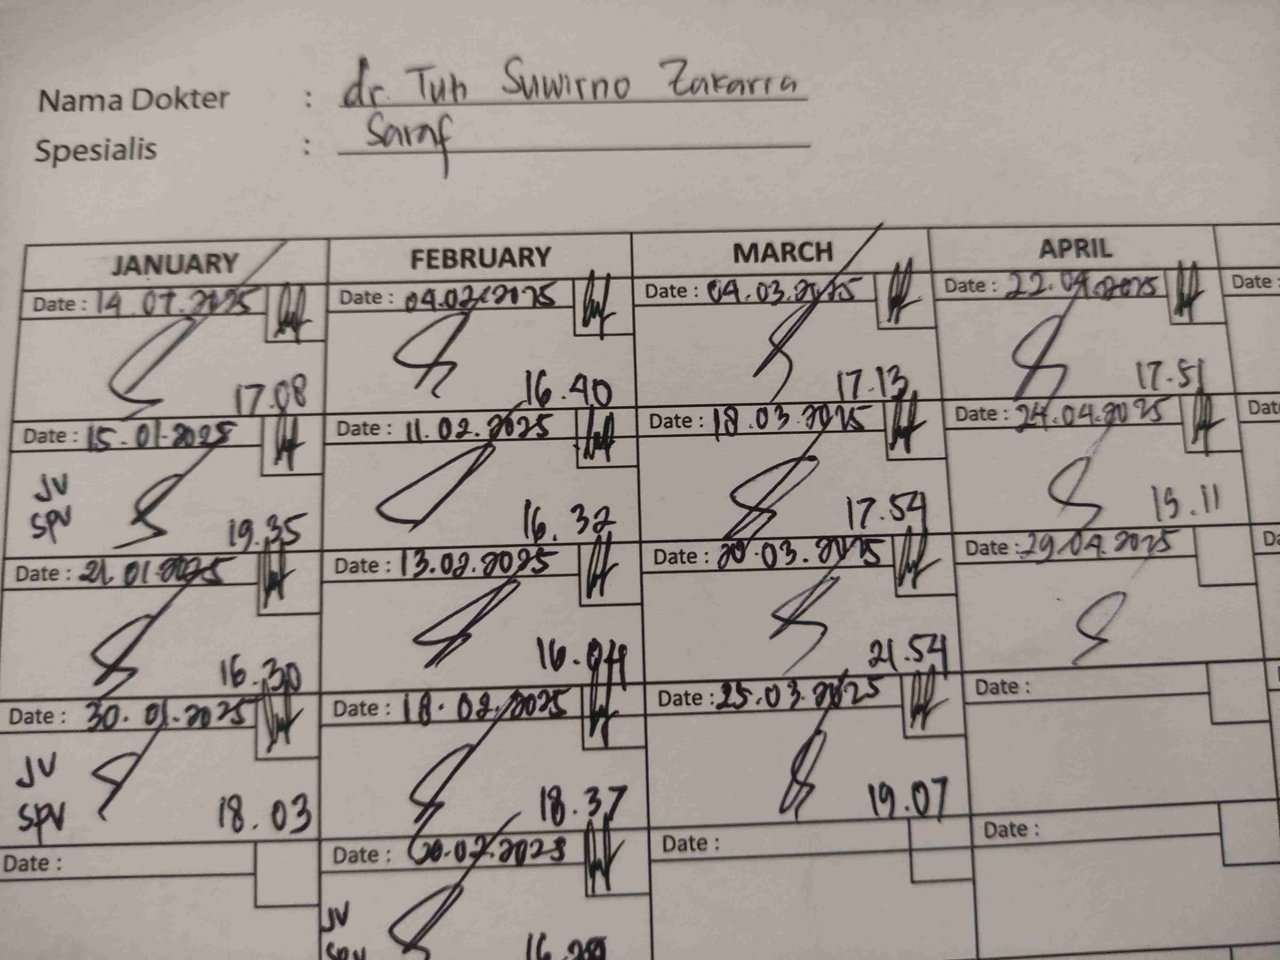 Nama Dokter : dr. Tuh Suwirno Zakaria
Spesialis : Saraf
JANUARY FEBRUARY MARCH APRIL
Date : 14.01.2025 Date : 04.02.2025 Date : 04.03.2025 Date : 22.04.2025 Date :
17.08 16.40 17.13 17.51
Date : 15.01.2025 Date : 11.02.2025 Date : 18.03.2025 Date : 24.04.2025 Dat
JV
SPV 19.35 16.32 17.54 19.11
Date : 21.01.2025 Date : 13.02.2025 Date : 20.03.2025 Date : 29.04.2025 Da
16.30 16.04 21.54
Date : 30.01.2025 Date : 18.02.2025 Date : 25.03.2025 Date :
JV
SPV 18.03 18.37 19.07
Date : Date : 20.02.2025 Date : Date :
JV
SPV